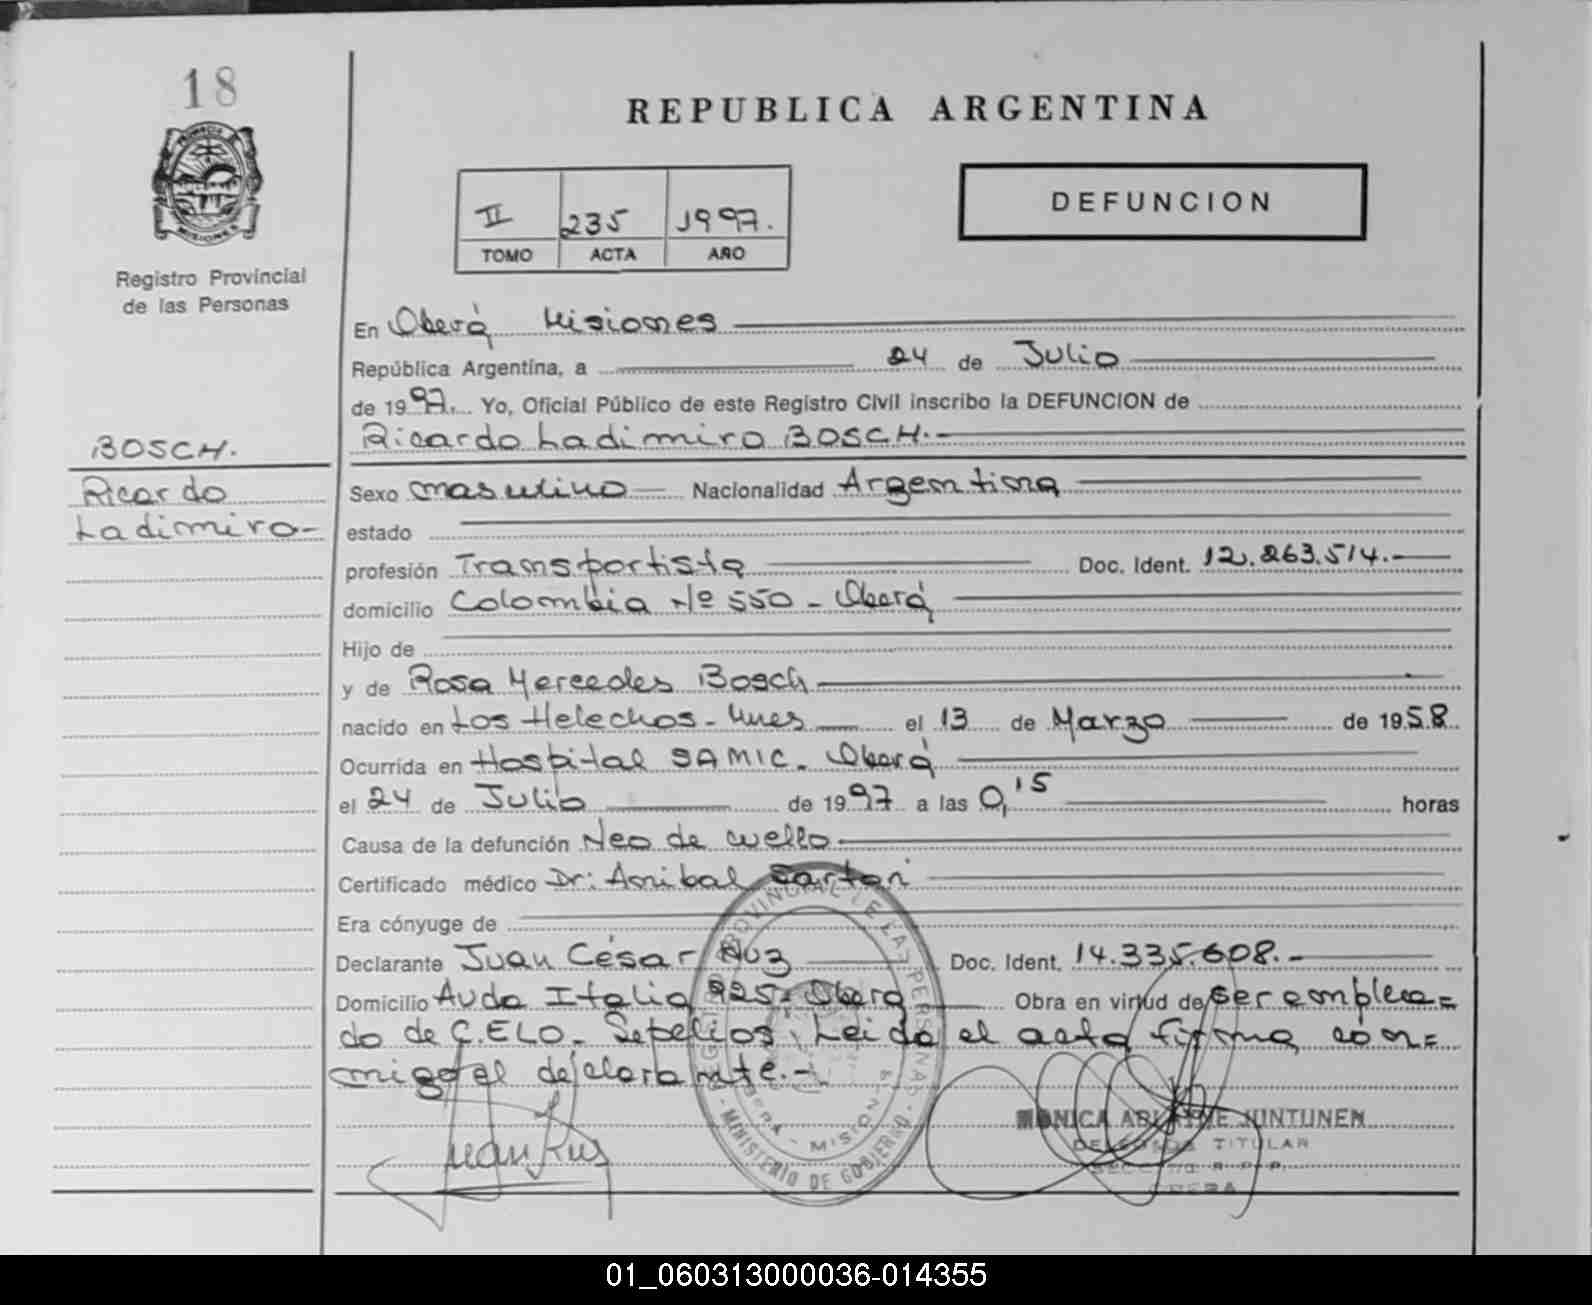 18
PROVINCIA DE
MISIONES
Registro Provincial
de las Personas
REPUBLICA ARGENTINA
II 235 1997.
TOMO ACTA AÑO
DEFUNCION
En Oberá Misiones
República Argentina, a 24 de Julio
de 1997. Yo, Oficial Público de este Registro Civil inscribo la DEFUNCION de
Ricardo Ladimiro BOSCH.-
BOSCH.
Ricardo
Ladimiro-
Sexo masculino Nacionalidad Argentina
estado
profesión Transportista Doc. Ident. 12.263.514.-
domicilio Colombia Nº 550 - Oberá
Hijo de
y de Rosa Mercedes Bosch
nacido en Los Helechos - Mnes el 13 de Marzo de 1958.
Ocurrida en Hospital SAMIC. Oberá
el 24 de Julio de 1997 a las 0,15 horas
Causa de la defunción Neo de cuello
Certificado médico Dr: Anibal Sartori
Era cónyuge de
Declarante Juan César Ruz Doc. Ident. 14.335.608.-
Domicilio Avda Italia 925 - Oberá Obra en virtud de ser emplea=
do de C.E.L.O. Sepelios. Leida el acta firma con=
migo el declarante.-
REGISTRO PROVINCIAL DE LAS PERSONAS
OBERA - MISIONES
- MINISTERIO DE GOBIERNO -
Juan Ruz
MONICA JUNTUNEN
TITULAR
R. P. P.
OBERA
01_060313000036-014355